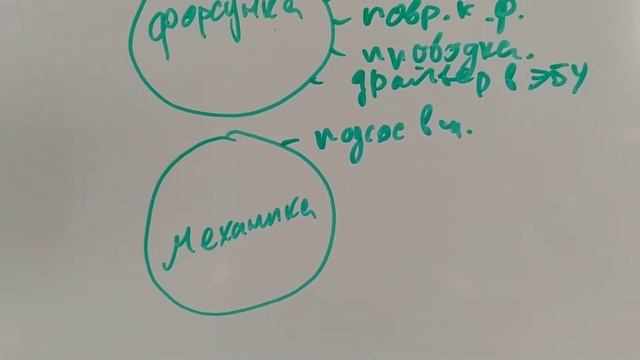 форсунка
повр. к. ф.
проводка.
драйвер в ЭБУ
подсос в
механика